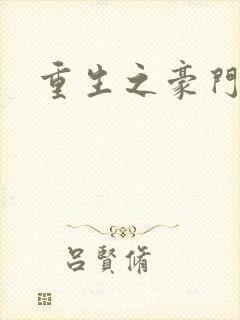 重生之豪門
吕賢脩